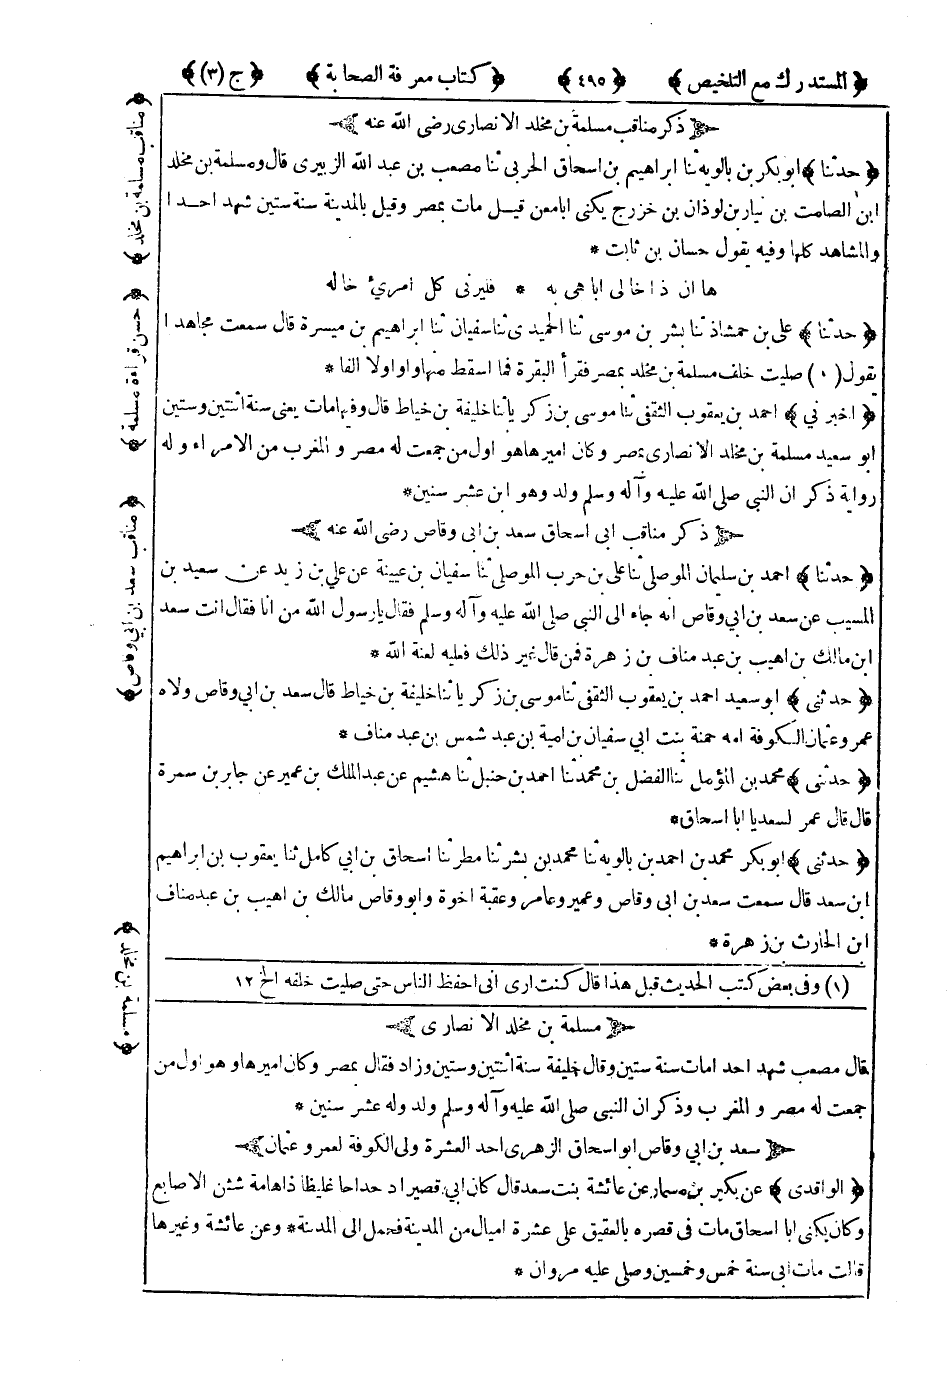 ﴿ المستدرك مع التلخيص ﴾ ﴿ ٤٩٥ ﴾ ﴿ كتاب معرفة الصحابة ﴾ ﴿ ج (٣) ﴾
ذكر مناقب مسلمة بن مخلد الانصارى رضى الله عنه
﴿ حدثنا ﴾ ابو بكر بن بالويه ثنا ابراهيم بن اسحاق الحربى ثنا مصعب بن عبد الله الزبيرى قال ومسلمة بن مخلد
ابن الصامت بن نيار بن لوذان بن خزرج يكنى ابا معن قيل مات بمصر وقيل بالمدينة سنة ستين شهد احدا
والمشاهد كلها وفيه يقول حسان بن ثابت *
ها ان ذا خالى اباهى به * فليرنى كل امرئ خاله
﴿ حدثنا ﴾ على بن حمشاذ ثنا بشر بن موسى ثنا الحميدى ثنا سفيان ثنا ابراهيم بن ميسرة قال سمعت مجاهدا
يقول (١) صليت خلف مسلمة بن مخلد بمصر فقرأ البقرة فما اسقط منها واوا ولا الفا *
﴿ اخبرنى ﴾ احمد بن يعقوب الثقفى ثنا موسى بن زكريا ثنا خليفة بن خياط قال وفيها مات يعنى سنة اثنتين وستين
ابو سعيد مسلمة بن مخلد الانصارى بمصر وكان اميرها هو اول من جمعت له مصر و المغرب من الامراء وله
رواية ذكر ان النبى صلى الله عليه وآله وسلم ولد وهو ابن عشر سنين *
ذكر مناقب ابى اسحاق سعد بن ابى وقاص رضى الله عنه
﴿ حدثنا ﴾ احمد بن سليمان الموصلى ثنا على بن حرب الموصلى ثنا سفيان بن عيينة عن على بن زيد عن سعيد بن
المسيب عن سعد بن ابى وقاص انه جاء الى النبى صلى الله عليه وآله وسلم فقال يارسول الله من انا فقال انت سعد
ابن مالك بن اهيب بن عبد مناف بن زهرة فمن قال غير ذلك فعليه لعنة الله *
﴿ حدثنى ﴾ ابو سعيد احمد بن يعقوب الثقفى ثنا موسى بن زكريا ثنا خليفة بن خياط قال سعد بن ابى وقاص ولاه
عمر وعثمان الكوفة امه حمنة بنت ابى سفيان بن امية بن عبد شمس بن عبد مناف *
﴿ حدثنى ﴾ محمد بن المؤمل ثنا الفضل بن محمد ثنا احمد بن حنبل ثنا هشيم عن عبد الملك بن عمير عن جابر بن سمرة
قال قال عمر لسعد يا ابا اسحاق *
﴿ حدثنى ﴾ ابو بكر محمد بن احمد بن بالويه ثنا محمد بن بشر ثنا مطر ثنا اسحاق بن ابى كامل ثنا يعقوب بن ابراهيم
ابن سعد قال سمعت سعد بن ابى وقاص وعمير وعامر وعقبة اخوة وابو وقاص مالك بن اهيب بن عبد مناف
ابن الحارث بن زهرة *
(١) وفى بعض كتب الحديث قبل هذا قال كنت ارى انى احفظ الناس حتى صليت خلفه الخ ١٢
مسلمة بن مخلد الانصارى
قال مصعب شهد احدا مات سنة ستين وقال خليفة سنة اثنتين وستين وزاد فقال بمصر وكان اميرها وهو اول من
جمعت له مصر و المغرب وذكر ان النبى صلى الله عليه وآله وسلم ولد وله عشر سنين *
سعد بن ابى وقاص ابو اسحاق الزهرى احد العشرة ولى الكوفة لعمر وعثمان
﴿ الواقدى ﴾ عن بكير بن مسمار عن عائشة بنت سعد قال كان ابى قصيرا دحداحا غليظا ذا هامة شثن الاصابع
وكان يكنى ابا اسحاق مات فى قصره بالعقيق على عشرة اميال من المدينة فحمل الى المدينة * وعن عائشة وغيرها
قالت مات ابى سنة خمس وخمسين وصلى عليه مروان *
﴿ مناقب مسلمة بن مخلد ﴾
﴿ حسن قراءة مسلمة ﴾
﴿ مناقب سعد بن ابى وقاص ﴾
﴿ مسلمة بن مخلد ﴾